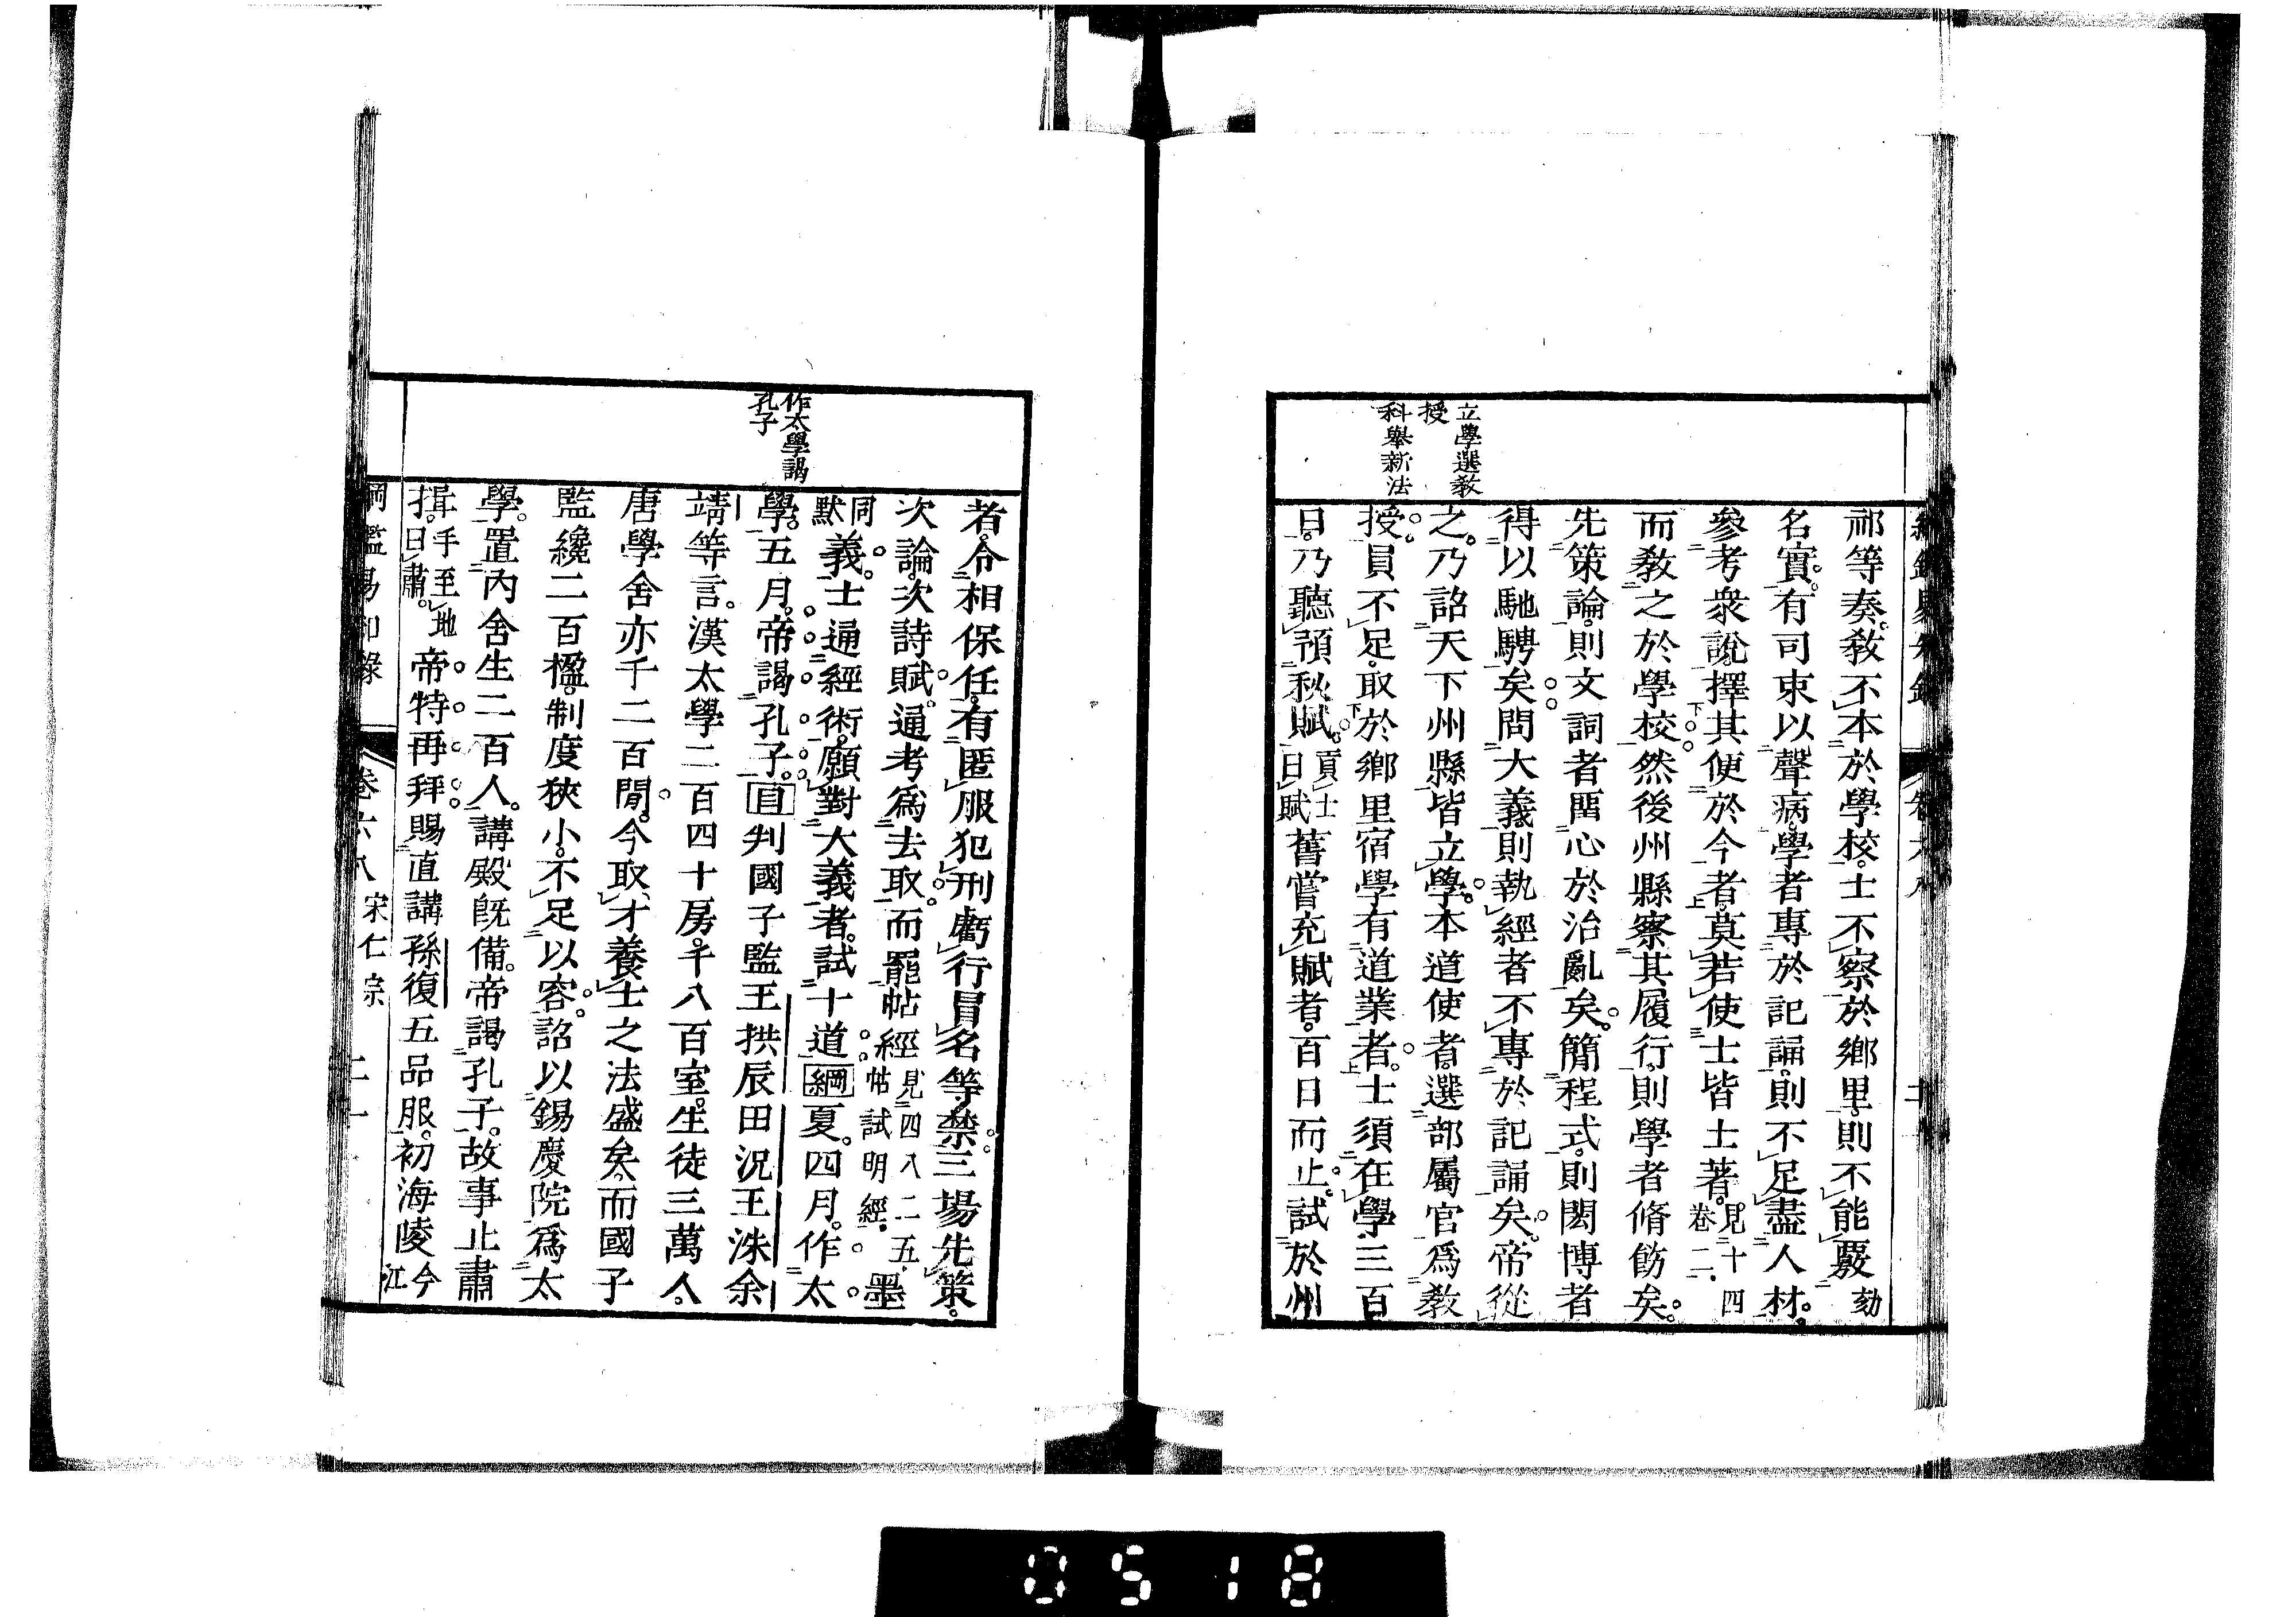 立學選教
授
科舉新法
祁等奏。教不本於學校。士不察於鄉里。則不能覈劾
名實。有司束以聲病。學者專於記誦。則不足盡人材。
參考衆說。擇其便於今者。莫若使士皆土著。見十四卷二。
而教之於學校。然後州縣察其履行。則學者脩飭矣。
先策論。則文詞者畱心於治亂矣。簡程式。則閎博者
得以馳騁矣。問大義。則執經者不專於記誦矣。帝從
之。乃詔天下州縣皆立學。本道使者。選部屬官爲教
授。員不足。取於鄉里宿學有道業者。士須在學三百
日。乃聽預秋賦。貢士曰賦舊嘗充賦者。百日而止。試於州
作太學謁
孔子
者。令相保任。有匿服犯刑虧行冒名等禁。三場先策。
次論。次詩賦。通考爲去取。而罷帖經見四八二五。帖試明經。墨
同默義。士通經術。願對大義者。試十道綱夏。四月。作太
學。五月。帝謁孔子。目判國子監王拱辰田況王洙余
靖等言。漢太學二百四十房。千八百室。生徒三萬人。
唐學舍亦千二百間。今取才養士之法盛矣。而國子
監纔二百楹。制度狹小。不足以容。詔以錫慶院爲太
學。置內舍生二百人。講殿旣備。帝謁孔子。故事止肅
揖。手至地曰肅。帝特再拜。賜直講孫復五品服。初海陵今江
綱鑑易知錄 卷六八 宋仁宗